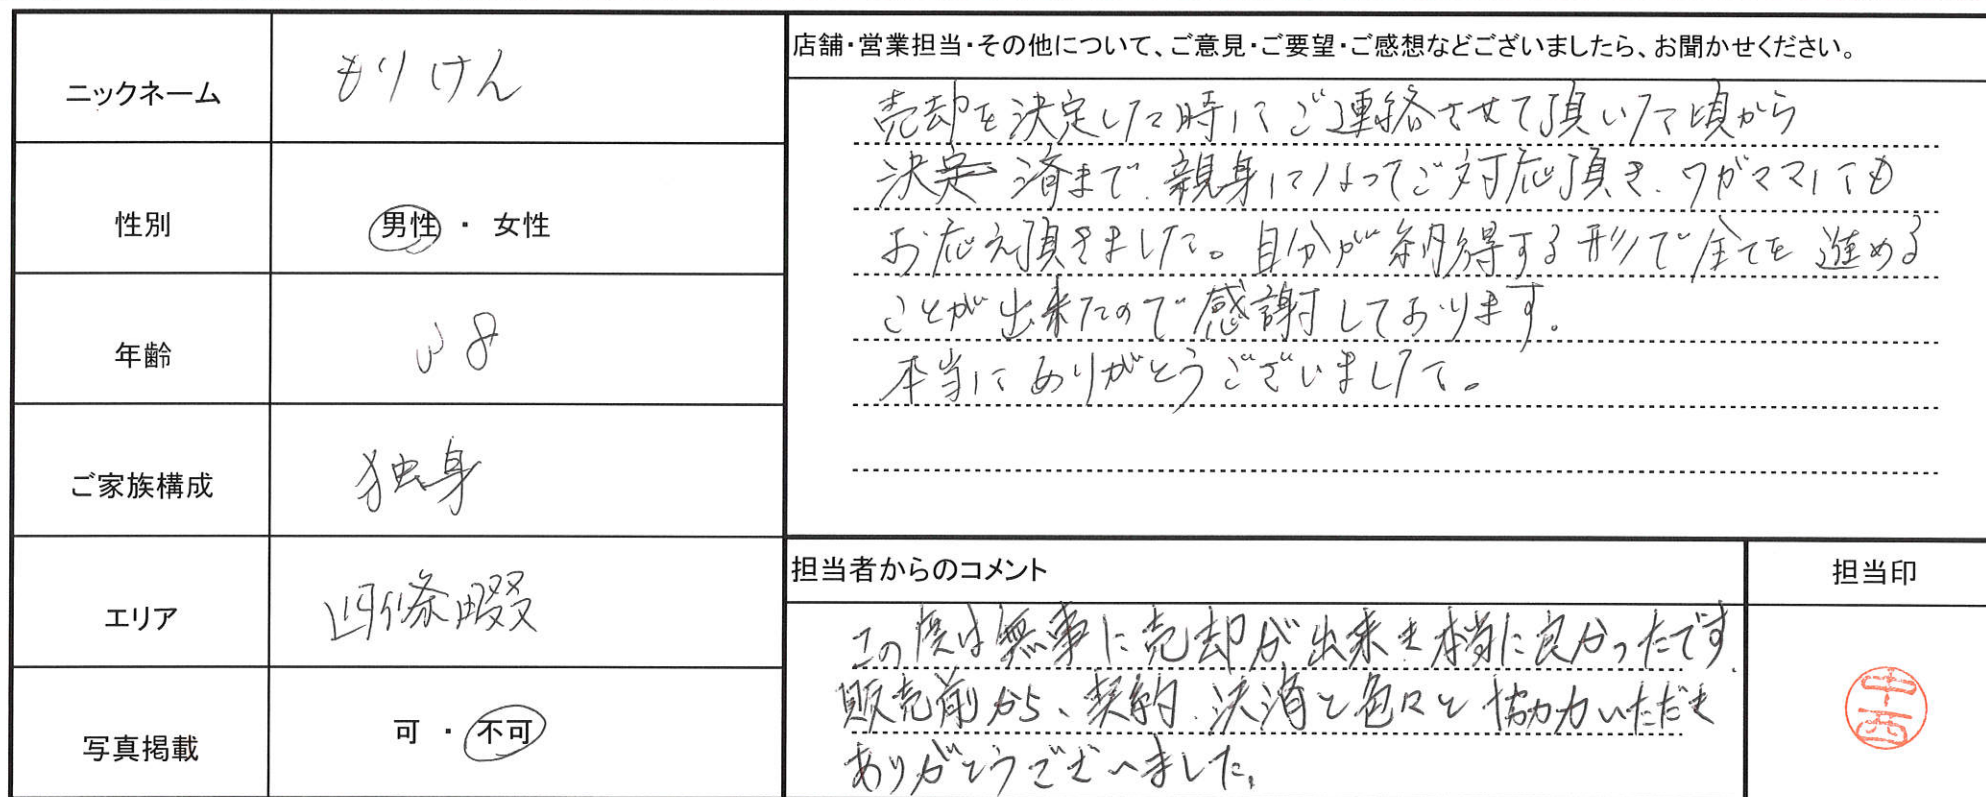 ニックネーム
もりけん
性別
男性 ・ 女性
年齢
38
ご家族構成
独身
エリア
四條畷
写真掲載
可 ・ 不可
店舗・営業担当・その他について、ご意見・ご要望・ご感想などございましたら、お聞かせください。
売却を決定した時にご連絡させて頂いた頃から
決済まで、親身になってご対応頂き、ワガママにも
お応え頂きました。自分が納得する形で全てを進める
ことが出来たので感謝しております。
本当にありがとうございました。
担当者からのコメント
この度は無事に売却が出来き本当に良かったです
販売前から、契約、決済と色々と協力いただき
ありがとうございました。
担当印
中西